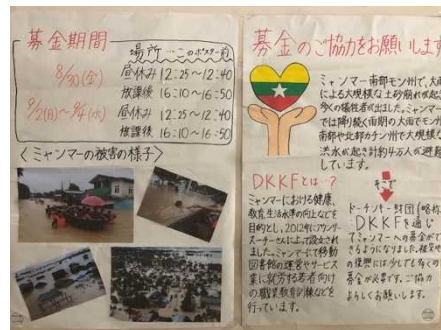 募金期間
場所…このポスター前
8/30(金)
昼休み 12:25〜12:40
放課後 16:10〜16:50
9/2(月)〜9/4(水)
昼休み 12:25〜12:40
放課後 16:10〜16:50
〈ミャンマーの被害の様子〉
募金のご協力をお願いします
ミャンマー南部モン州で、大雨
による大規模な土砂崩れが起き
多くの犠牲者が出ました。ミャンマー
では降り続く雨期の大雨でモン州
南部や北部カチン州で大規模な
洪水が起き計約4万人が避難
しています。
そこで
DKKFとは…?
ミャンマーにおける健康、
教育、生活水準の向上などを
目的とし、2012年にアウンサン
スーチーさんによって設立され
ました。ミャンマーにて移動
図書館の運営やサービス
業に就労する若者向け
の職業教育訓練などを
行っています。
ドーキンチー財団(略称
DKKFを通じ
てミャンマーへの募金ができ
きるようになりました。被災地
の復興には、少しでも多くの
募金が必要です。ご協力
よろしくお願いします。